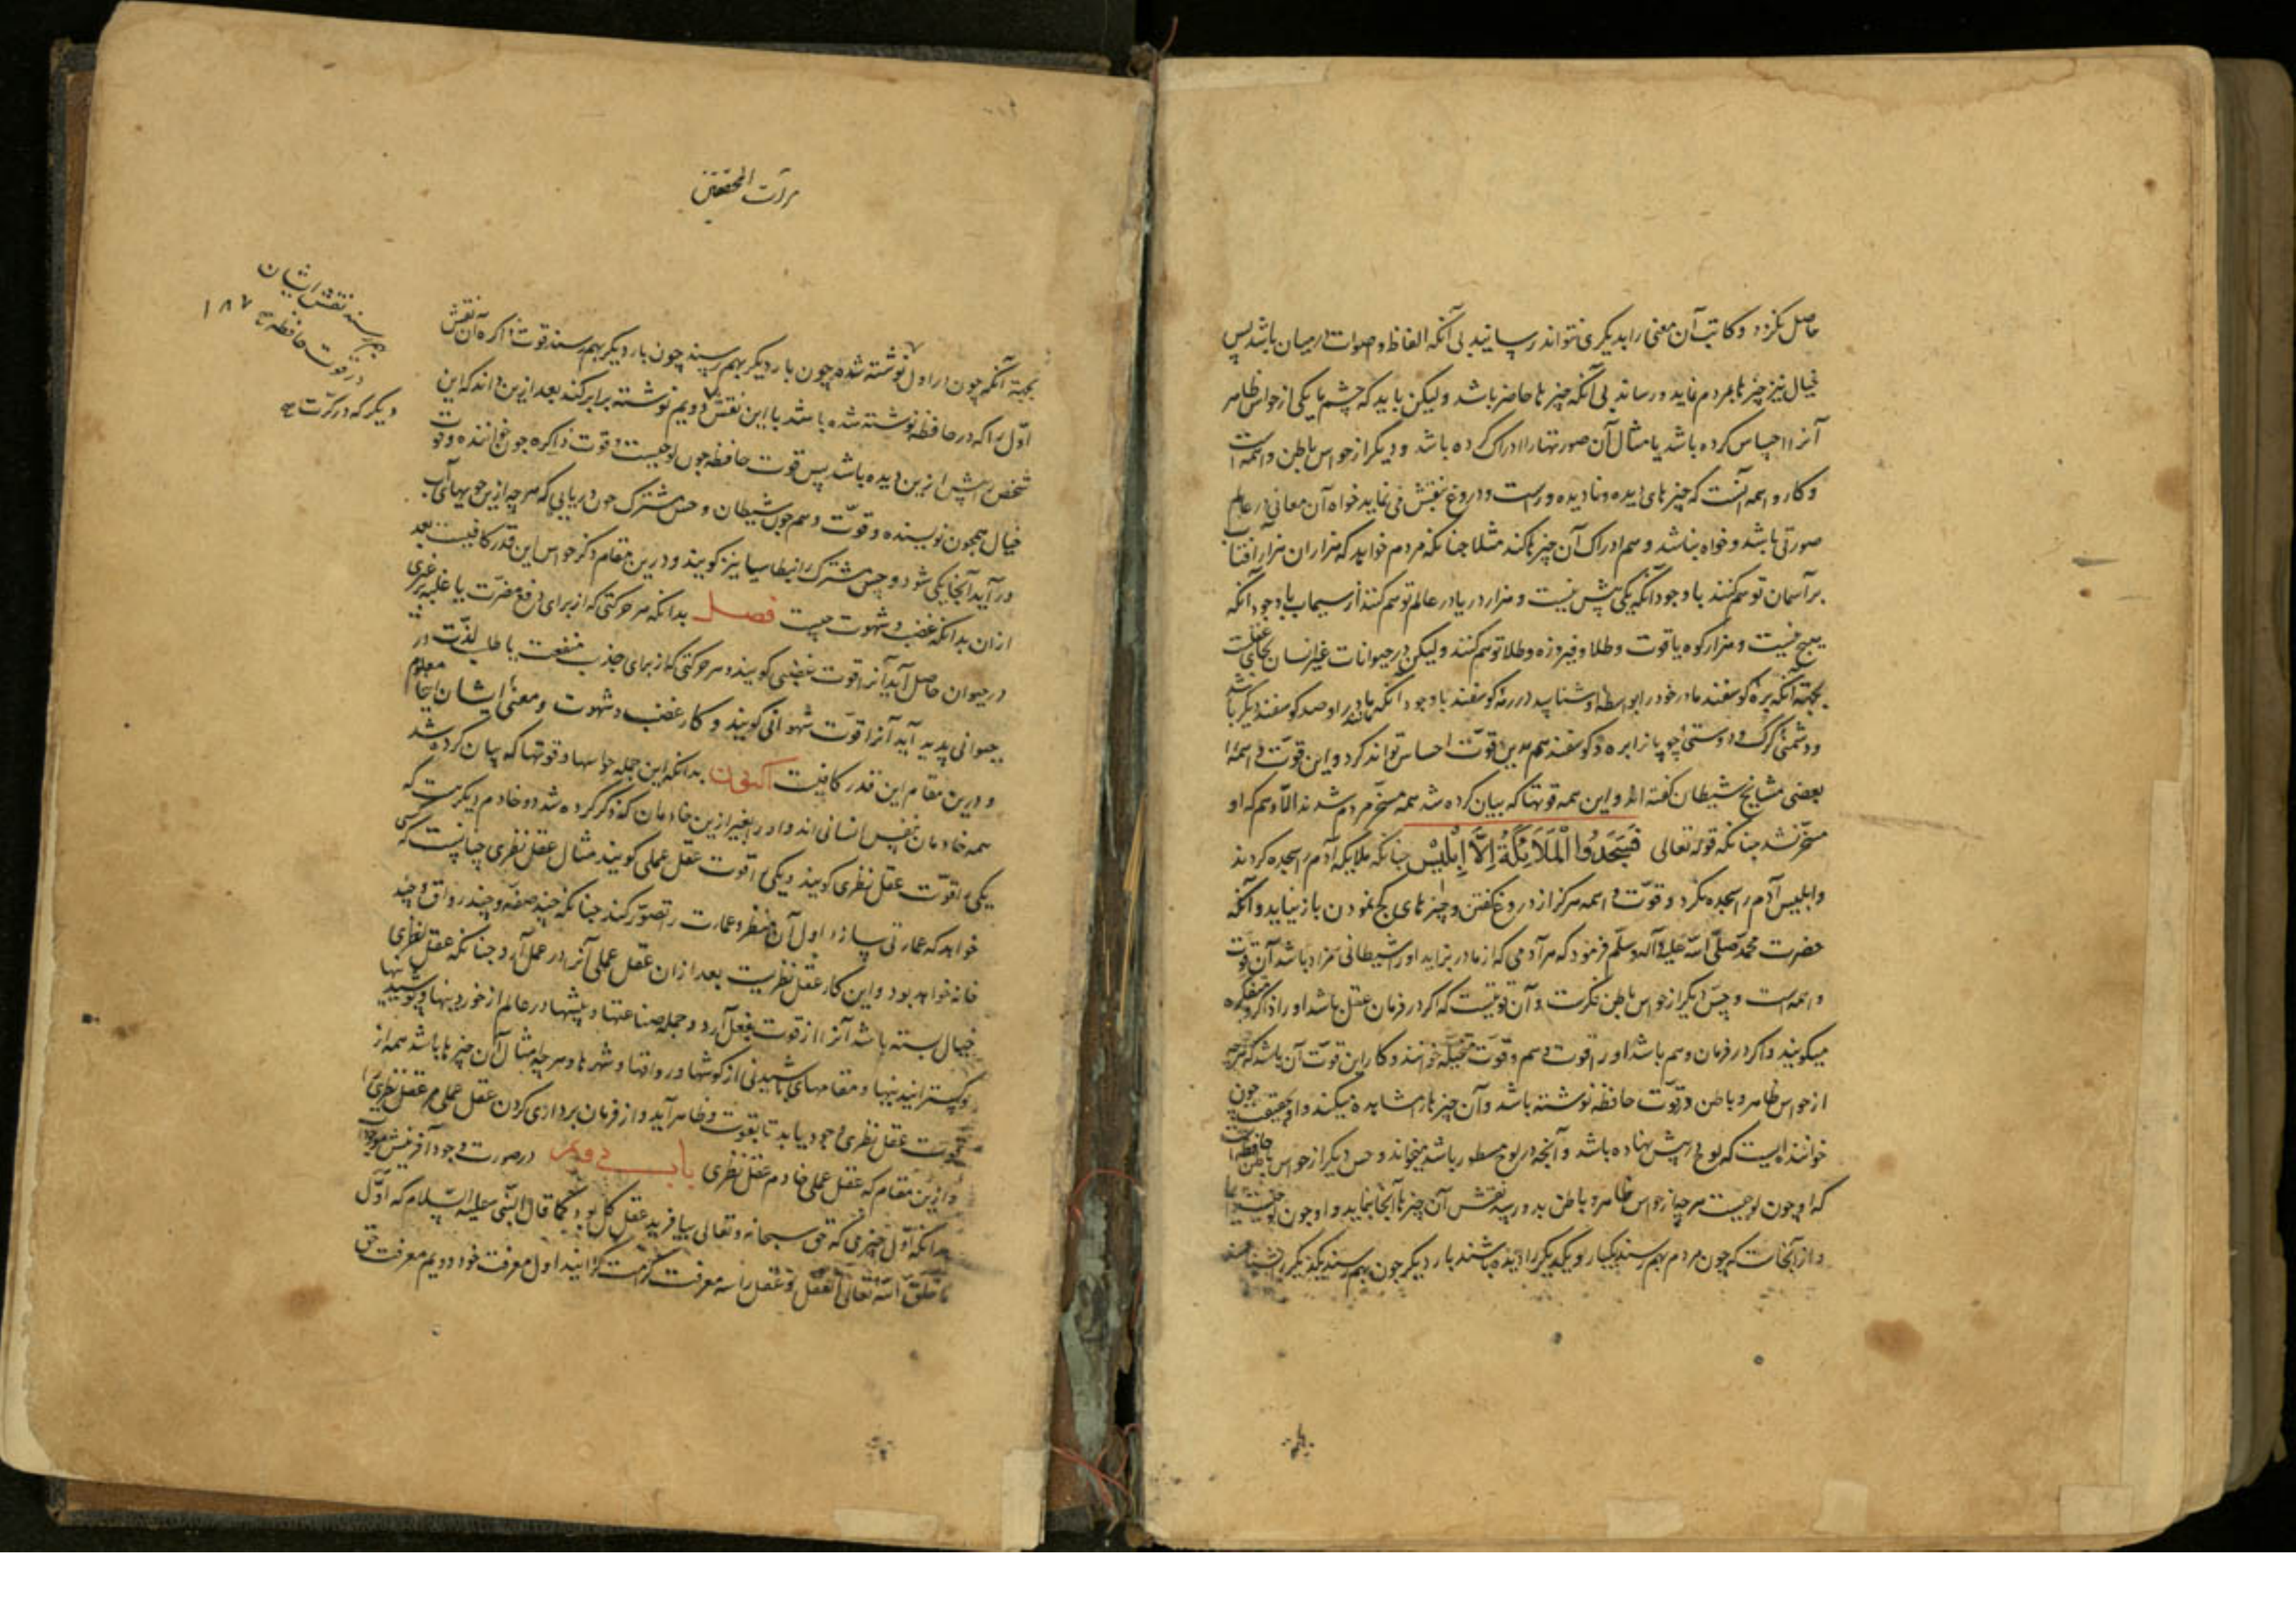 حاصل نکردد و کاتب آن معنی را بدیکری نتواند رسانید بی آنکه الفاظ و اصوات درمیان باشد پس
خیال نیز چیزها بمردم نماید و رساند بی آنکه چیزها حاضر باشد ولیکن باید که چشم یا یکی از حواس ظاهر
آنرا احساس کرده باشد یا مثال آن صورتها را ادراک کرده باشد و دیکر از حواس باطن واهمه است
و کار واهمه آنست که چیزهای دیده و نادیده و راست و دروغ بنقش می نماید خواه آن معانی در عالم
صورتی باشد و خواه نباشد و هم ادراک آن چیزها کند مثلا چنانکه مردم خواهد که هزاران هزار آفتاب
بر آسمان توهم کنند با وجود آنکه یکی پیش نیست و هزار دریا در عالم توهم کنند از سیماب با وجود آنکه
هیچ نیست و هزار کوه یاقوت و طلا و فیروزه و طلا توهم کنند ولیکن در حیوانات غیر انسان بجای عقلست
بجهة آنکه بره کوسفند مادر خود را بواسطه او شناسد در رمه کوسفند با وجود آنکه مانند مادر او صد کوسفند دیکر باشد
و دشمنی کرک و دوستی چوپانرا بره و کوسفند هم بدین قوت احساس تواند کرد و این قوت واهمه را
بعضی مشایخ شیطان کفته اند و این همه قوتها که بیان کرده شد همه مسخر مردم شدند الا وهم که او
مسخر نشد چنانکه قوله تعالی فَسَجَدُوا الْمَلَائِكَةُ اِلَّا اِبْلِیْسْ چنانکه ملایکه آدم را سجده کردند
و ابلیس آدم را سجده نکرد و قوت واهمه هرکز از دروغ کفتن و چیزهای کج نمودن باز نیاید و آنکه
حضرت محمد صلی الله علیه و آله وسلم فرمود که هر آدمی که از مادر بزاید او را شیطانی همزاد باشد آن قوت
واهمه است و حس دیکر از حواس باطن فکرست و آن قوتیست که اکر در فرمان عقل باشد او را ذاکره و متفکره
میکویند و اکر در فرمان وهم باشد او را قوت وهم و قوت متخیله خوانند و کار این قوت آن باشد که هرچه
از حواس ظاهر و باطن در قوت حافظه نوشته باشد و آن چیزها را مشاهده میکند و او بحقیقت چون
خواننده ایست که لوح در پیش نهاده باشد و آنچه در لوح مسطور باشد میخواند و حس دیکر از حواس باطن حافظه است
که او چون لوحیست هرچه از حواس ظاهر و باطن بدو رسد نقش آن چیزها آنجا نماید و او چون
و از آنجاست که چون مردم بهم رسند یکبار و یکدیکر را دیده باشند بار دیکر چون بهم رسند یکدیکر را بشناسند
مرآت المحققین
بهم رسند نقش ایشان
در قوت حافظه صح ۱۸۷
دیکر که در کرت صح
بجهة آنکه چون بار اول نوشته شده چون بار دیکر بهم رسند چون بار دیکر بهم رسند قوت ذاکره آن نقش
اول را که در حافظه نوشته شده باشد با این نقش دویم نوشته برابر کند بعد ازین داند که این
شخص را پیش ازین دیده باشد پس قوت حافظه چون لوحیست و قوت ذاکره چون خواننده و قوت
خیال همچون نویسنده و قوت وهم چون شیطان و حس مشترک چون دریایی که هرچه ازین جویهای آب
در آید آنجا یکی شود و حس مشترک را بنطاسیا نیز کویند و درین مقام ذکر حواس این قدر کافیست بعد
ازان بدانکه غضب و شهوت چیست فصل بدانکه هر حرکتی که از برای دفع مضرت یا غلبه بر غیری
در حیوان حاصل آید آنرا قوت غضبی کویند و هر حرکتی که از برای جذب منفعت یا طلب لذت در
حیوانی پدید آید آنرا قوت شهوانی کویند و کار غضب و شهوت و معنی ایشان اینجا معلوم
و درین مقام این قدر کافیست اکنون بدانکه این جمله حواسها و قوتها که بیان کرده شد
همه خادمان نفس انسانی اند و او را بغیر ازین خادمان که ذکر کرده شد دو خادم دیکرست که
یکی را قوت عقل نظری کویند و یکی را قوت عقل عملی کویند مثال عقل نظری چنانست که کسی
خواهد که عمارتی سازد اول آن منظر و عمارت را تصور کند چنانکه چند صفه و چند رواق و چند
خانه خواهد بود و این کار عقل نظریست بعد ازان عقل عملی آنرا در عمل آرد چنانکه عقل نظری
خیال بسته باشد آنرا از قوت بفعل آرد و جمله صناعتها و پیشها در عالم از خوردنیها و پوشیدنیها
و کسترانیدنیها و مقامهای باشیدنی از کوشها و رواقها و شهرها و هرچه امثال آن چیزها باشد همه از
قوت عقل نظری وجود یابد تا بقوت و ظاهر آید و از فرمان برداری کردن عقل عملی مر عقل نظری را
و ازین مقام که عقل عملی خادم عقل نظری باب دویم در صورت وجود آفرینش موجودات
بدانکه اول چیزی که حق سبحانه و تعالی بیافرید عقل کل بود کما قال النبی علیه السلام که اول
ما خلق الله تعالی العقل و عقل را سه معرفت کرامت کردانید اول معرفت خود دویم معرفت حق